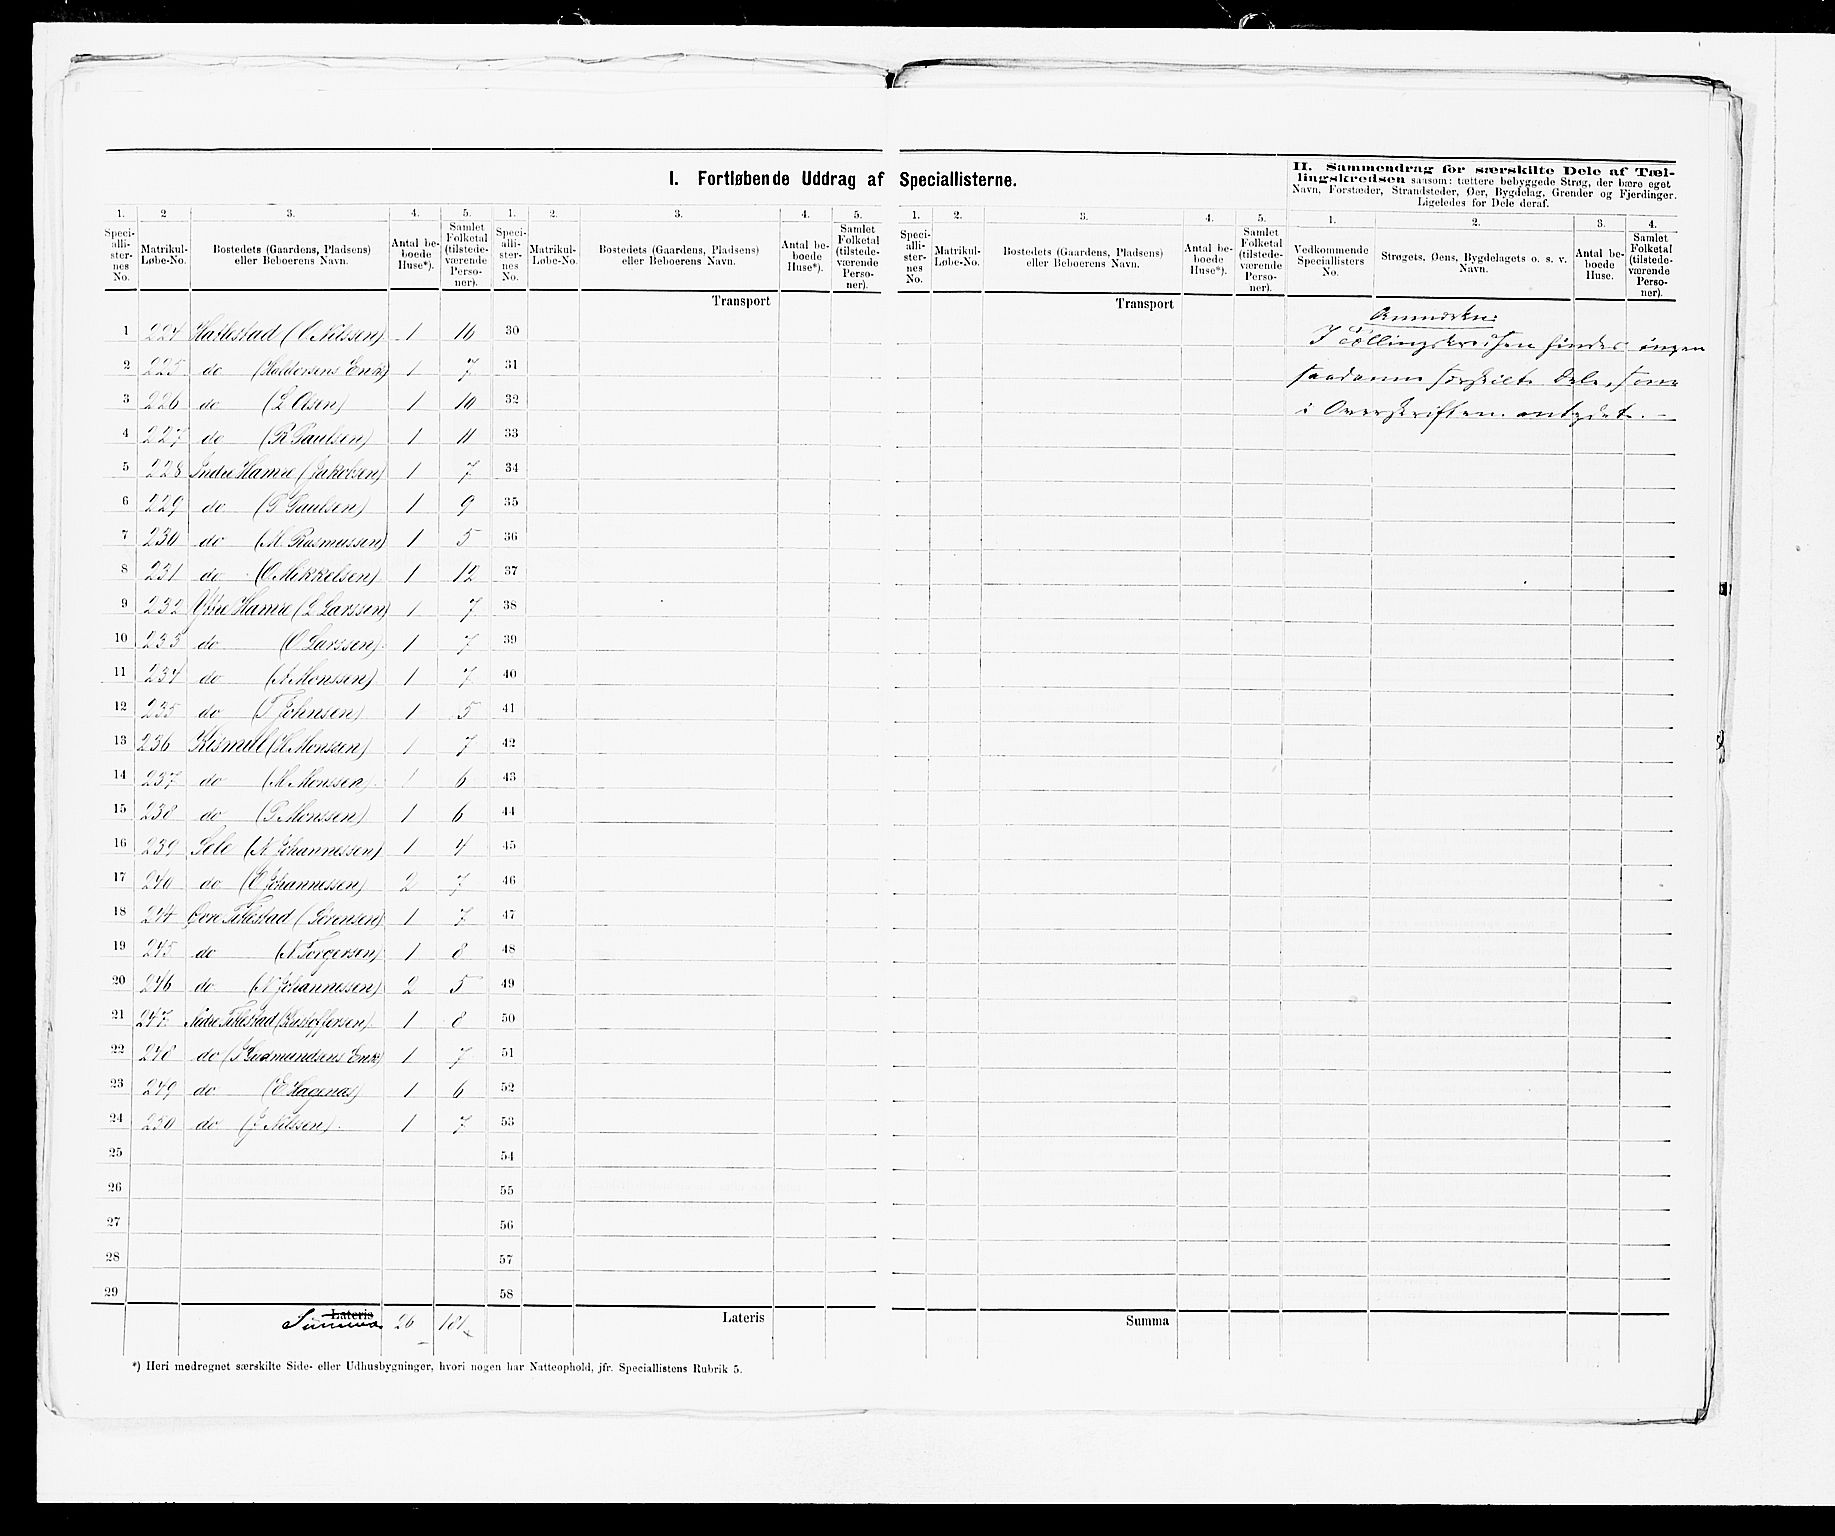 I. Fortløbende Uddrag af Speciallisterne.
II. Sammendrag for særskilte Dele af Tæl-
lingskredsen saasom: tættere bebyggede Strøg, der bære eget
Navn, Forstæder, Strandsteder, Øer, Bygdelag, Grender og Fjerdinger.
Ligeledes for Dele deraf.
1. 2 3. 4. 5. 1. 2. 3. 4. 5. 1. 2. 3. 4. 5. 1. 2. 3. 4.
Speci-alli-ster-nes No. Matrikul-Løbe-No. Bostedets (Gaardens, Pladsens) eller Beboerens Navn. Antal be-boede Huse*). Samlet Folketal (tilstede-værende Perso-ner).
Speci-alli-ster-nes No. Matrikul-Løbe-No. Bostedets (Gaardens, Pladsens) eller Beboerens Navn. Antal be-boede Huse*). Samlet Folketal (tilstede-værende Perso-ner).
Speci-alli-ster-nes No. Matrikul-Løbe-No. Bostedets (Gaardens, Pladsens) eller Beboerens Navn. Antal be-boede Huse*). Samlet Folketal (tilstede-værende Perso-ner).
Vedkommende Speciallisters No. Strøgets, Øens, Bygdelagets o. s. v. Navn. Antal be-boede Huse. Samlet Folketal (tilstede-værende Perso-ner).
Transport Transport
1 224 Hatlestad (O Nilssen) 1 10 30
2 225 do (Haldorsens Enke) 1 7 31
3 226 do (L Olsen) 1 10 32
4 227 do (R Paulsen) 1 11 33
5 228 Indre Hamre (Jakobsen) 1 7 34
6 229 do (P Paulsen) 1 9 35
7 230 do (M. Rasmussen) 1 5 36
8 231 do (O Mikkelsen) 1 12 37
9 232 Ytre Hamre (L Larssen) 1 7 38
10 233 do (O Larssen) 1 7 39
11 234 do (A Monssen) 1 7 40
12 235 do (T Johnsen) 1 5 41
13 236 Kismul (H Monssen) 1 7 42
14 237 do (M Monssen) 1 6 43
15 238 do (P Monssen) 1 6 44
16 239 Sele (N Johannessen) 1 4 45
17 240 do (E Johannessen) 2 7 46
18 244 Øvre Tillestad (Sørensen) 1 7 47
19 245 do (N Torgersen) 1 8 48
20 246 do (N Johannessen) 2 5 49
21 247 Nedre Tillestad (Kristoffersen) 1 8 50
22 248 do (Gudmundsens Enke) 1 7 51
23 249 do (E Hagenas) 1 6 52
24 250 do (J Nilssen) 1 7 53
25 54
26 55
27 56
28 57
29 58
Lateris Summa 26 181 Lateris Summa
Anmærkn:
I Tællingskredsen findes ingen
saadanne særskilte Dele, som
i Overskriften antydet. -
*) Heri medregnet særskilte Side- eller Udhusbygninger, hvori nogen har Natteophold, jfr. Speciallistens Rubrik 5.